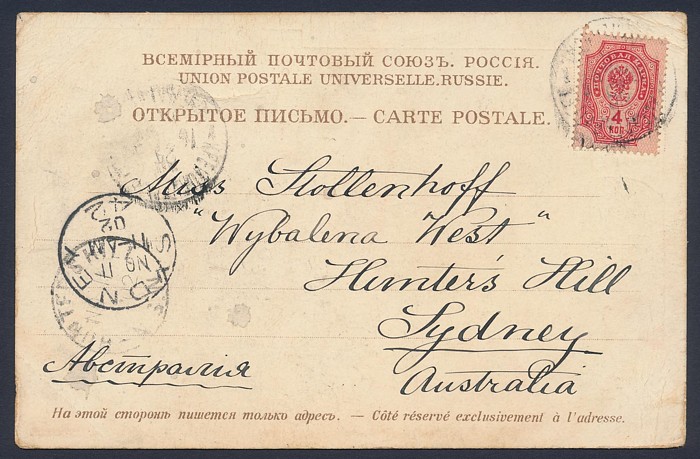 ВСЕМІРНЫЙ ПОЧТОВЫЙ СОЮЗЪ. РОССІЯ.
UNION POSTALE UNIVERSELLE. RUSSIE.
ОТКРЫТОЕ ПИСЬМО.— CARTE POSTALE.
ПОЧТОВАЯ МАРКА
4
КОП
Miss Stollenhoff
"Wybalena West"
Hunter's Hill
Sydney
Australia
Австралія
SYDNEY
NO 11
02
На этой сторонѣ пишется только адресъ. — Côté réservé exclusivement à l'adresse.